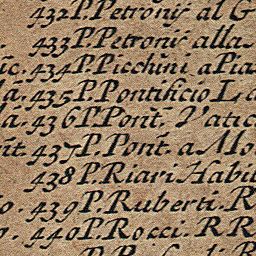 432 P. Petronij al G
433 P. Petronij alla
434 P. Picchini a Pia
435 P. Pontificio La
436 P. Pont. Vatic
437 P. Pont. a Mo
438 P. Riari Habit
439 P. Ruberti. R
440 P. Rocci. RR